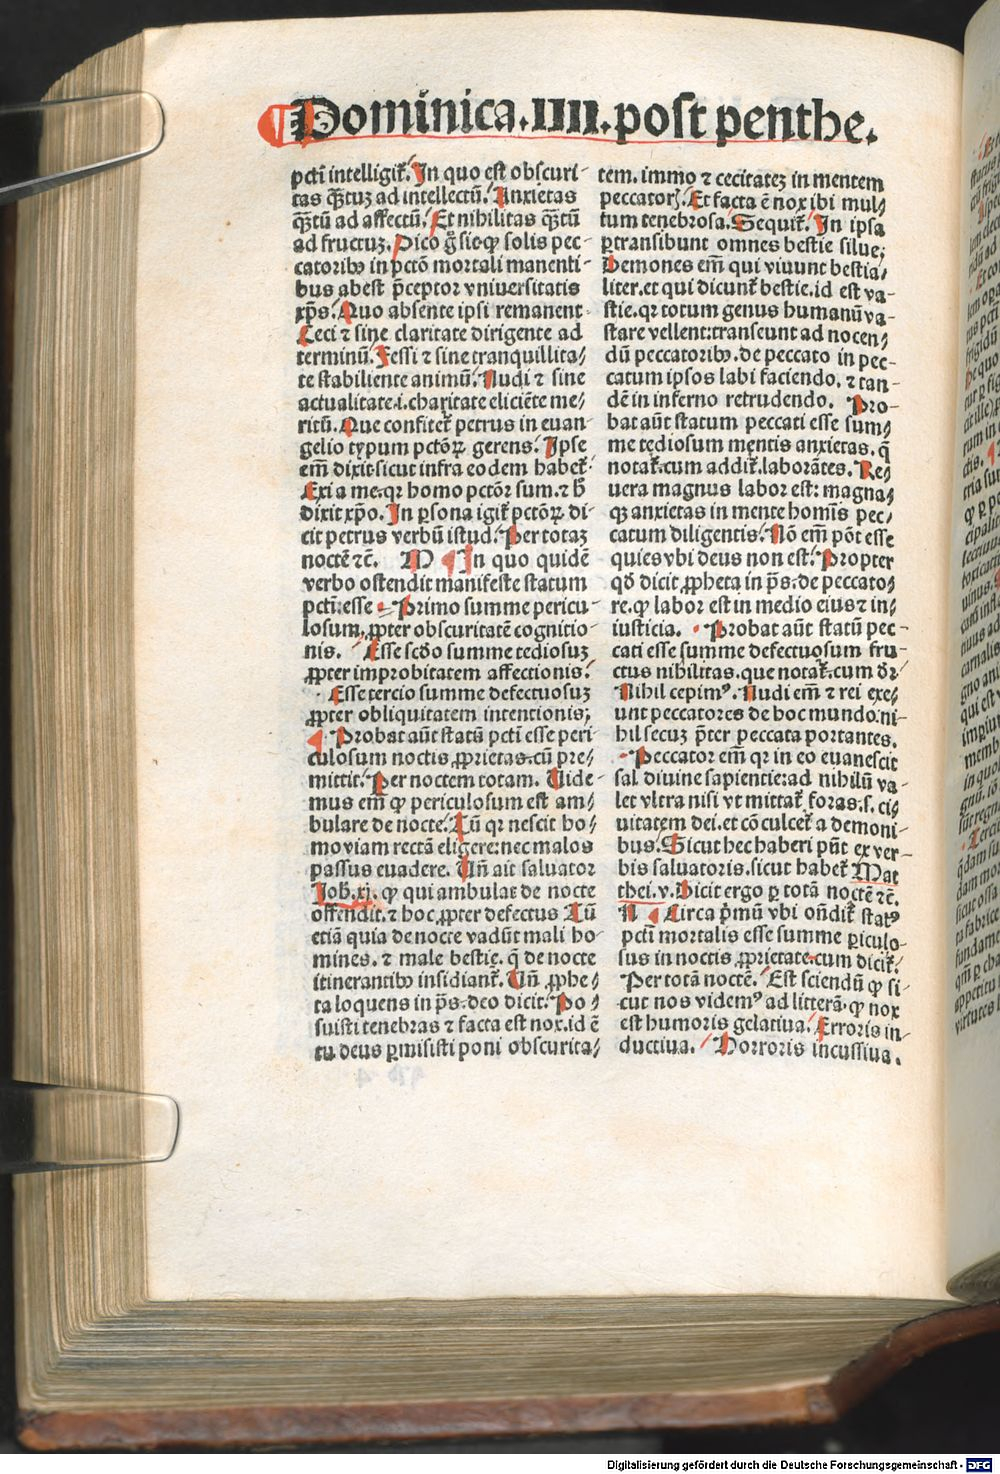 Dominica.IIII.post penthe.
pcti intelligit̃. In quo est obscuri-
tas q̃tuȝ ad intellectũ. Anxietas
q̃tũ ad affectũ. Et nihilitas q̃tũ
ad fructuȝ. Dico solis pec-
catoribꝰ in pctõ mortali manenti-
bus abest p̃ceptor vniuersitatis
xp̃s. Quo absente ipsi remanent
Ceci ⁊ sine claritate dirigente ad
terminũ. Fessi ⁊ sine tranquillita/
te stabiliente animũ. Nudi ⁊ sine
actualitate.i.charitate eliciẽte me/
ritũ. Que confitet̃ petrus in euan-
gelio typum pctõꝝ gerens. Ipse
em̃ dixit sicut infra eodem habet̃.
Exi a me.qꝛ homo pctõr sum.⁊ b̃
dixit xp̃o. In ꝑsona igit̃ pctõꝝ di-
cit petrus verbũ istud. Per totaȝ
noctẽ ⁊c̃. M ¶ In quo quidẽ
verbo ostendit manifeste statum
pcti esse. Primo summe pericu-
losum.ꝓpter obscuritatẽ cognitio-
nis. Esse scdo summe tediosuȝ
ꝓpter improbitatem affectionis.
Esse tercio summe defectuosuȝ
ꝓpter obliquitatem intentionis.
¶ Probat aũt statũ pcti esse peri
culosum noctis ꝓprietas.cũ pre/
mittit. Per noctem totam. Uide-
mus em̃ ꝙ periculosum est am/
bulare de nocte. Tũ qꝛ nescit ho/
mo viam rectã eligere:nec malos
passus euadere. Uñ ait saluator
Joh̃.xj. ꝙ qui ambulat de nocte
offendit.⁊ hoc ꝓpter defectus Tũ
etiã quia de nocte vadũt mali ho-
mines.⁊ male bestie. q̃ de nocte
itinerantibꝰ insidiant̃. Uñ ꝓphe/
ta loquens in p̃s.deo dicit. Po/
suisti tenebras ⁊ facta est nox.id ẽ
tu deus ꝑmisisti poni obscurita/
tem.immo ⁊ cecitateȝ in mentem
peccatorꝭ. Et facta ẽ nox ibi mul/
tum tenebrosa. Sequit̃. In ipsa
ꝑtransibunt omnes bestie silue;
Demones em̃ qui viuunt bestia/
liter.et qui dicunt̃ bestie.id est va-
stie.qꝛ totum genus humanũ va-
stare vellent:transeunt ad nocen/
dũ peccatoribꝰ.de peccato in pec-
catum ipsos labi faciendo.⁊ tan-
dẽ in inferno retrudendo. Pro-
bat aũt statum peccati esse sum/
me tediosum mentis anxietas. q̃
notat̃.cum addit̃.laborãtes. Re/
uera magnus labor est: magnaȝ
qȝ anxietas in mente homĩs pec/
catum diligentis. Nõ em̃ põt esse
quies vbi deus non est. Propter
qđ dicit ꝓpheta in p̃s.de peccato/
re.ꝙ labor est in medio eius ⁊ in/
iusticia. Probat aũt statũ pec-
cati esse summe defectuosum fru-
ctus nihilitas.que notat̃.cum dꝛ/
Nihil cepimꝰ. Nudi em̃ ⁊ rei exe/
unt peccatores de hoc mundo:ni-
hil secuȝ p̃ter peccata portantes.
Peccator em̃ qꝛ in eo euanescit
sal diuine sapientie:ad nihilũ va-
let vltra nisi vt mittat̃ foras.s.ci/
uitatem dei.et cõculcet̃ a demoni-
bus. Sicut hec haberi pñt ex ver-
bis saluatoris.sicut habet̃ Mat
thei.v. Dicit ergo ꝑ totã noctẽ ⁊c̃.
N ¶ Circa p̃mũ vbi oñdit̃ statꝰ
pcti mortalis esse summe ꝑiculo-
sus in noctis ꝓprietate.cum dicit̃.
Per totã noctẽ. Est sciendũ ꝙ si-
cut nos videmꝰ ad litterã.ꝙ nox
est humoris gelatiua. Erroris in-
ductiua. Horroris incussiua.
Digitalisierung gefördert durch die Deutsche Forschungsgemeinschaft - DFG